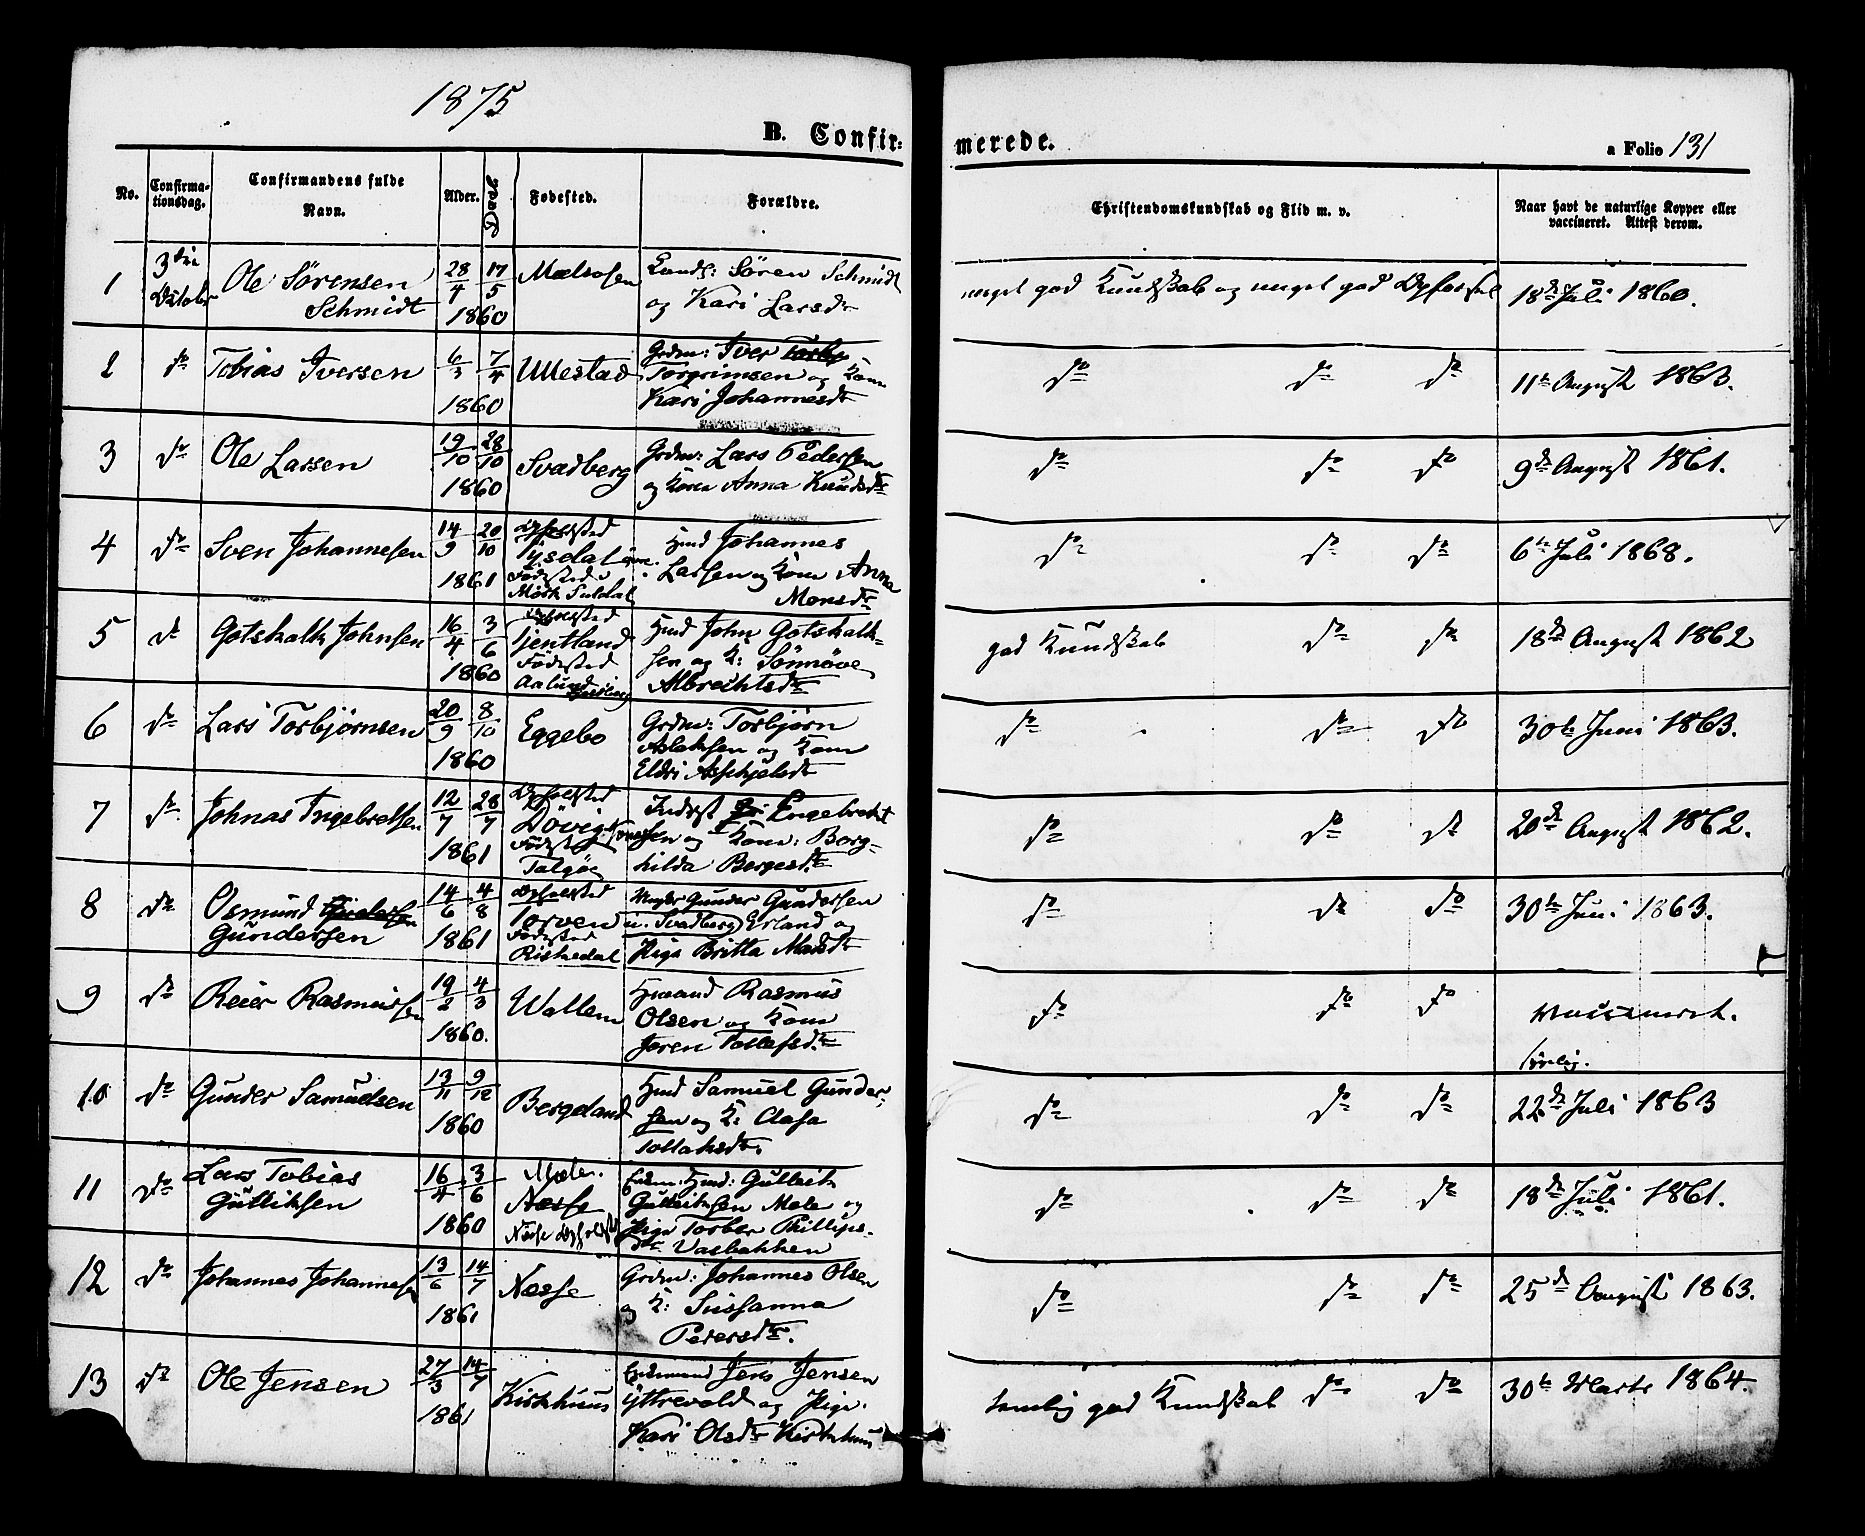 1875
B. Confir-merede.
a Folio 131
No. Confirma-tionsdag. Confirmandens fulde Navn. Alder. Daab Fødested. Forældre. Christendomskundskab og Flid m. v. Naar havt de naturlige Kopper eller vaccineret. Attest derom.
1 3die October Ole Sörensen Schmidt 28/4 17/5 1860 Mælsosen Sören Schmidt og Kari Larsdr meget god Kundskab og meget god 18de Juli 1860.
2 do Tobias Iversen 6/3 7/4 1860 Ullestad Grdm: Iver Torgrimsen og Kone Kari Johannesdr do do do 11te August 1863.
3 do Ole Larsen 19/10 28/10 1860 Svadberg Grdm: Lars Pedersen og Kone Anna Knudsdr do do do 9de August 1861.
4 do Sven Johannesen 14/9 20/10 1861 Opholdsted Tysdal Fødested Mosk Suldal Hmd Johannes Larsen og Kone Anna Monsdr do do do 6te Juli 1868.
5 do Gotskalk Johnsen 16/4 3/6 1860 Opholdsted Tjentland Fødested Aalund Hmd John Gotskalk-sen og K: Sönnöve Albrechtsdr god Kundskab do do 18de August 1862
6 do Lars Torbjørnsen 20/9 8/10 1860 Eggebo Grdm: Torbjørn Aslaksen og Kone Eldri Asskjelsdr do do do 30te Juni 1863.
7 do Johnas Ingebretsen 12/7 28/7 1861 Opholdsted Dövig Fødested Talgöe Inderst Engebrekt Ionessen og Kone: Borg-hilda Bergesdr do do do 20de August 1862.
8 do Osmund Gundersen 14/6 4/8 1861 Opholdsted Torven Fødested Riskedal Ungkr Gunder Gundersen (i. Svadberg) Erland og Pige Britta Madsdr do do do 30te Juni 1863.
9 do Reier Rasmussen 19/2 4/3 1860. Wallem Hmand Rasmus Olsen og Kone Joren Tollefsdr do do do
10 do Gunder Samuelsen 13/11 9/12 1860 Bergeland Hmd Samuel Gunder-sen og K: Olafa Tollaksdr. do do do 22de Juli 1863
11 do Lars Tobias Gulliksen 16/4 3/6 1860 Mæle. Næsse Næsse Opholdst Enkem. Hmd: Gullik Gulleiksen Mele og Pige Torber Phillips-dr Vasbakken do do do 18de Juli 1861.
12 do Johannes Johannesen 13/6 14/7 1861 Næsse Grdm: Johannes Olsen og K: Sussanna Petersdr. do do do 25de August 1863.
13 do Ole Jensen 27/3 14/7 1861 Kirkhuus Enkemand Jens Jensen Yttrevold og Pige. Kari Olsdr Kirkhuus temlig god Kundskab do do 30te Marts 1864.